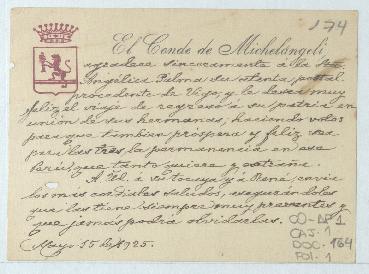 174
El Conde de Michelangeli
agradece sinceramente á la
Angélica Palma su atenta postal
procedente de Vigo, y la desea muy
feliz el viaje de regreso á su patria en
unión de sus hermanas, haciendo votos
para que tambien próspera y feliz sea
para las tres la permanencia en ese
Perú, que tanto quiere y
A Ud. á su y á René envia
los mis cordiales saludos, asegurándoles
que las tiene siempre muy presentes y
que jamás podra olvidarlas.
Mayo 15 de 1925.
CAJ. 1
DOC. 164
FOL. 1